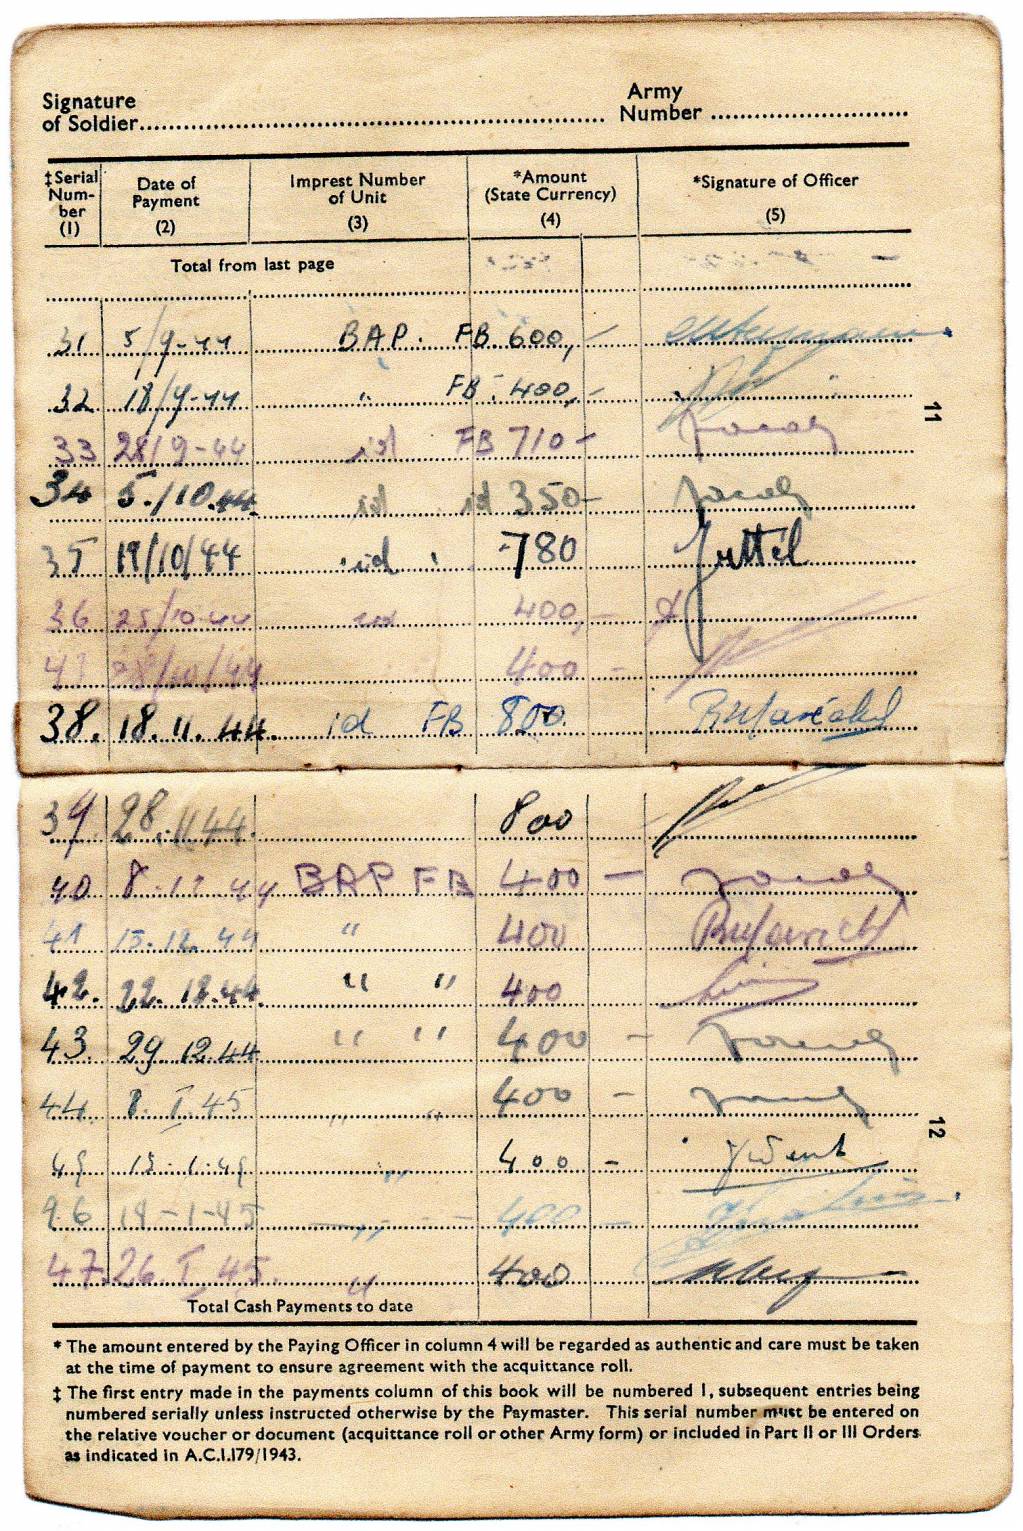 Signature
of Soldier
Army
Number
‡Serial Num- ber (1) Date of Payment (2) Imprest Number of Unit (3) *Amount (State Currency) (4) *Signature of Officer (5)
Total from last page
31 5/9-44 BAP. FB 600,-
32 18/9-44 " FB. 400,-
11
33 28/9-44 id FB 710- Jacoby
34 5./10.44. id id 350- Jacoby
35 19/10/44 id 780 Juttel
36 25/10-44 id 400,-
28/10/44 400 -
38. 18.11.44. id FB 800.
39 28.11 44. 800
40 8.12 44 BAP FB 400 - Jacoby
41 15.12.44 " 400
42. 22.12.44. " " 400
43. 29 12 44 " " 400 - Jacoby
44 8. I. 45 " " 400 - Jacoby
12
45 15-1-45 " 400 -
46 19-1-45 " 400 -
47. 26. I 45. " 400
Total Cash Payments to date
* The amount entered by the Paying Officer in column 4 will be regarded as authentic and care must be taken
at the time of payment to ensure agreement with the acquittance roll.
‡ The first entry made in the payments column of this book will be numbered 1, subsequent entries being
numbered serially unless instructed otherwise by the Paymaster. This serial number must be entered on
the relative voucher or document (acquittance roll or other Army form) or included in Part II or III Orders
as indicated in A.C.I.179/1943.